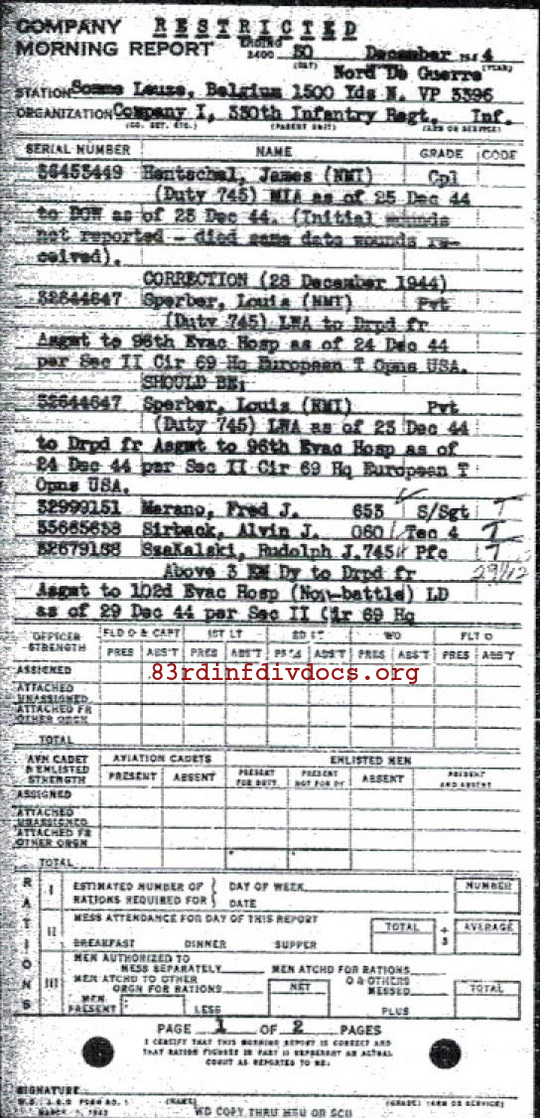 COMPANY RESTRICTED
MORNING REPORT ENDING 2400 30 December 1944
(DAY) (YEAR)
Nord De Guerre
STATION Somme Leuze, Belgium 1500 Yds N. VP 3396
ORGANIZATION Company I, 330th Infantry Regt, Inf.
(CO. DET. ETC.) (PARENT UNIT) (ARM OR SERVICE)
SERIAL NUMBER NAME GRADE CODE
36453449 Hentschel, James (NMI) Cpl
(Duty 745) MIA as of 25 Dec 44
to DOW as of 25 Dec 44. (Initial wounds
not reported - died same date wounds re-
ceived).
CORRECTION (28 December 1944)
32644647 Sperber, Louis (NMI) Pvt
(Duty 745) LWA to Drpd fr
Asgmt to 96th Evac Hosp as of 24 Dec 44
per Sec II Cir 69 Hq European T Opns USA.
SHOULD BE:
32644647 Sperber, Louis (NMI) Pvt
(Duty 745) LWA as of 23 Dec 44
to Drpd fr Asgmt to 96th Evac Hosp as of
24 Dec 44 per Sec II Cir 69 Hq European T
Opns USA.
32999151 Marano, Fred J. 653 S/Sgt T
Sirback, Alvin J. 060 Tec 4 T
32679188 Szakalski, Rudolph J. 745 Pfc T
Above 3 EM Dy to Drpd fr 29/12
Asgmt to 102d Evac Hosp (Non-battle) LD
as of 29 Dec 44 per Sec II Cir 69 Hq
OFFICER STRENGTH FLD O & CAPT 1ST LT 2D LT WO FLT O
PRES ABS'T PRES ABS'T PRES ABS'T PRES ABS'T PRES ABS'T
ASSIGNED
83rdinfdivdocs.org
ATTACHED UNASSIGNED
ATTACHED FR OTHER ORGN
TOTAL
AVN CADET & ENLISTED STRENGTH AVIATION CADETS ENLISTED MEN
PRESENT ABSENT PRESENT FOR DUTY PRESENT NOT FOR DY ABSENT PRESENT AND ABSENT
ASSIGNED
ATTACHED UNASSIGNED
ATTACHED FR OTHER ORGN
TOTAL
RATIONS
I ESTIMATED NUMBER OF RATIONS REQUIRED FOR DAY OF WEEK DATE NUMBER
II MESS ATTENDANCE FOR DAY OF THIS REPORT
BREAKFAST DINNER SUPPER TOTAL ÷ 3 AVERAGE
III MEN AUTHORIZED TO MESS SEPARATELY MEN ATCHD FOR RATIONS
MEN ATCHD TO OTHER ORGN FOR RATIONS NET O & OTHERS MESSED TOTAL
MEN PRESENT LESS PLUS
PAGE 1 OF 2 PAGES
I CERTIFY THAT THIS MORNING REPORT IS CORRECT AND
THAT RATION FIGURES IN PART II REPRESENT AN ACTUAL
COUNT AS REPORTED TO ME.
SIGNATURE
W.D., A.G.O. FORM NO. 1 (NAME) (GRADE) (ARM OR SERVICE)
WD COPY THRU MRU OR SCU